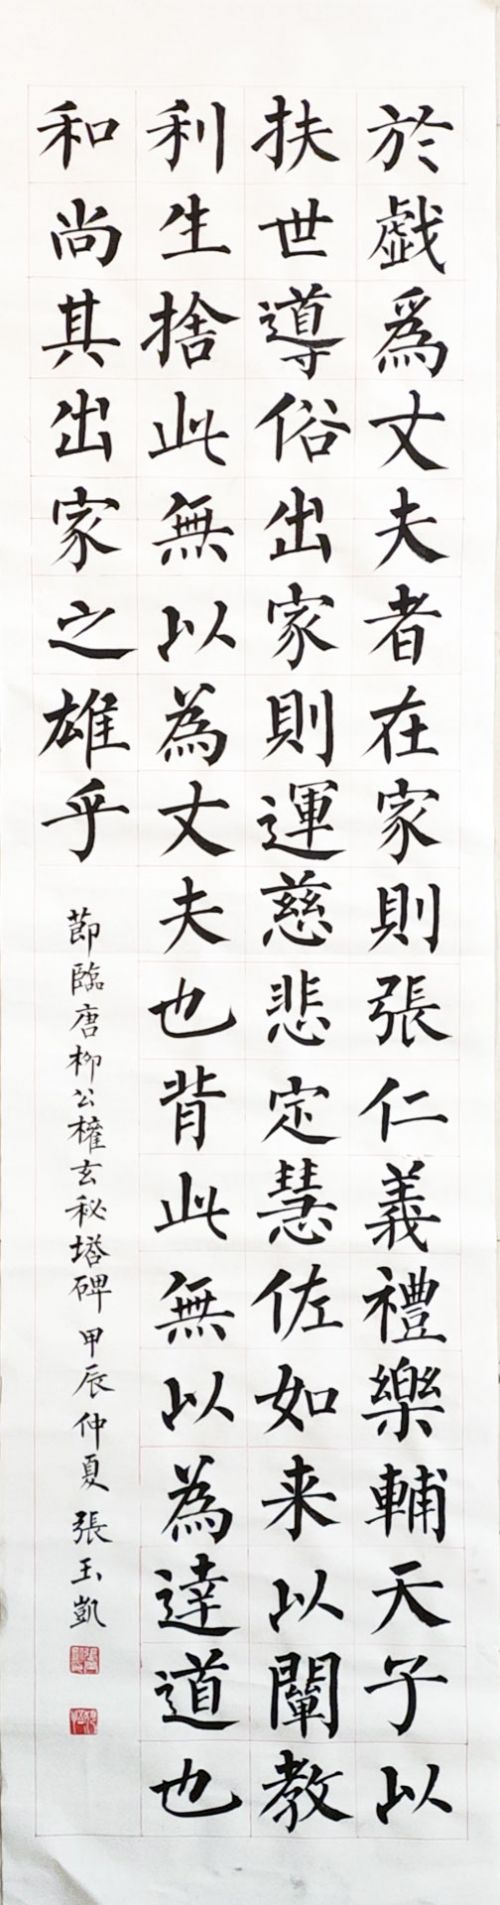 於戲爲丈夫者在家則張仁義禮樂輔天子以
扶世導俗出家則運慈悲定慧佐如来以闡教
利生捨此無以為丈夫也背此無以為達道也
和尚其出家之雄乎
節臨唐柳公權玄秘塔碑 甲辰仲夏 張玉凱